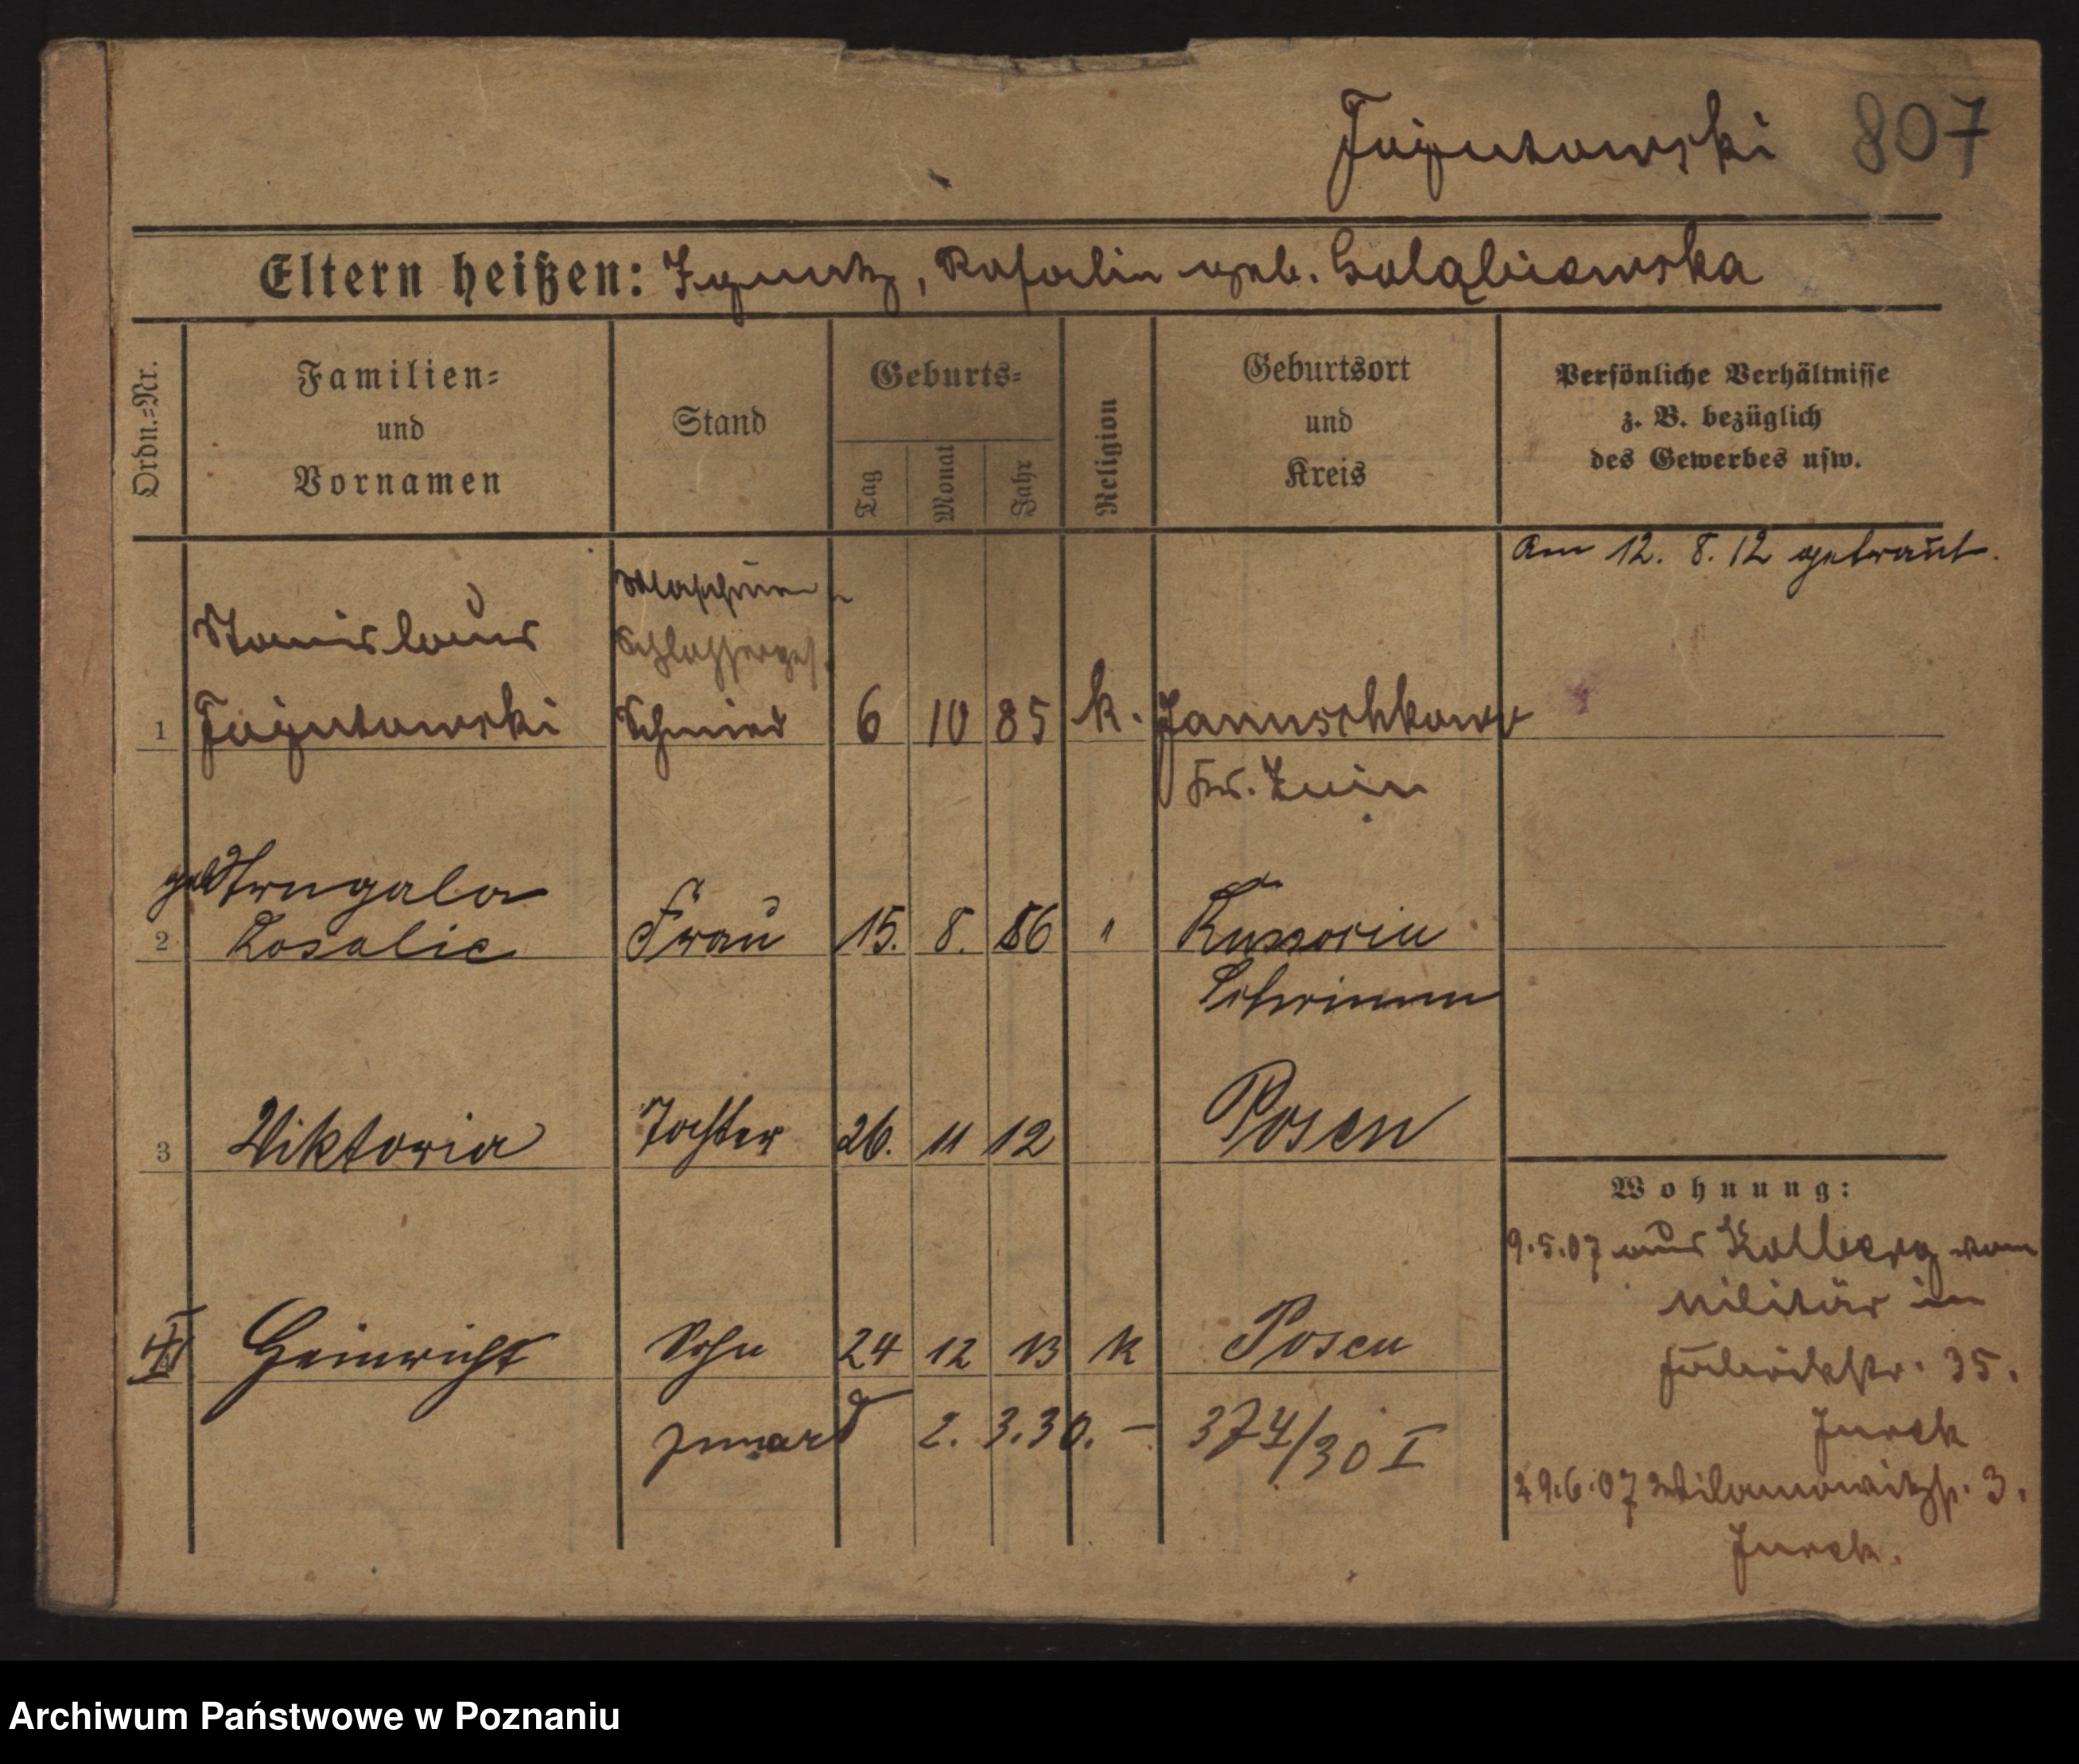 Jagutowski 807
Eltern heißen: Ignatz, Rosalie geb. Goląbiewska
Ordn.=Nr.
Familien=
und
Vornamen
Stand
Geburts=
Tag
Monat
Jahr
Religion
Geburtsort
und
Kreis
Persönliche Verhältnisse
z. B. bezüglich
des Gewerbes usw.
Am 12. 8. 12 getraut.
Maschinen
Stanislaus
Schlosserges.
1 Jagutowski Schmied 6 10 85 k. Januschkowo
Kr. Znin
geb Strugala
2 Rosalie Frau 15. 8. 86 "
Schrimm
3 Viktoria Tochter 26. 11 12 Posen
Wohnung:
9.5.07 aus Kolberg vom
Militär in
Fabrikstr. 35.
Jurek
4 Heinrich Sohn 24 12 13 k Posen
zmarł 2. 3. 30. – 374/30 I
29.6.07 Wilamowitzstr. 3.
Jurek.
Archiwum Państwowe w Poznaniu